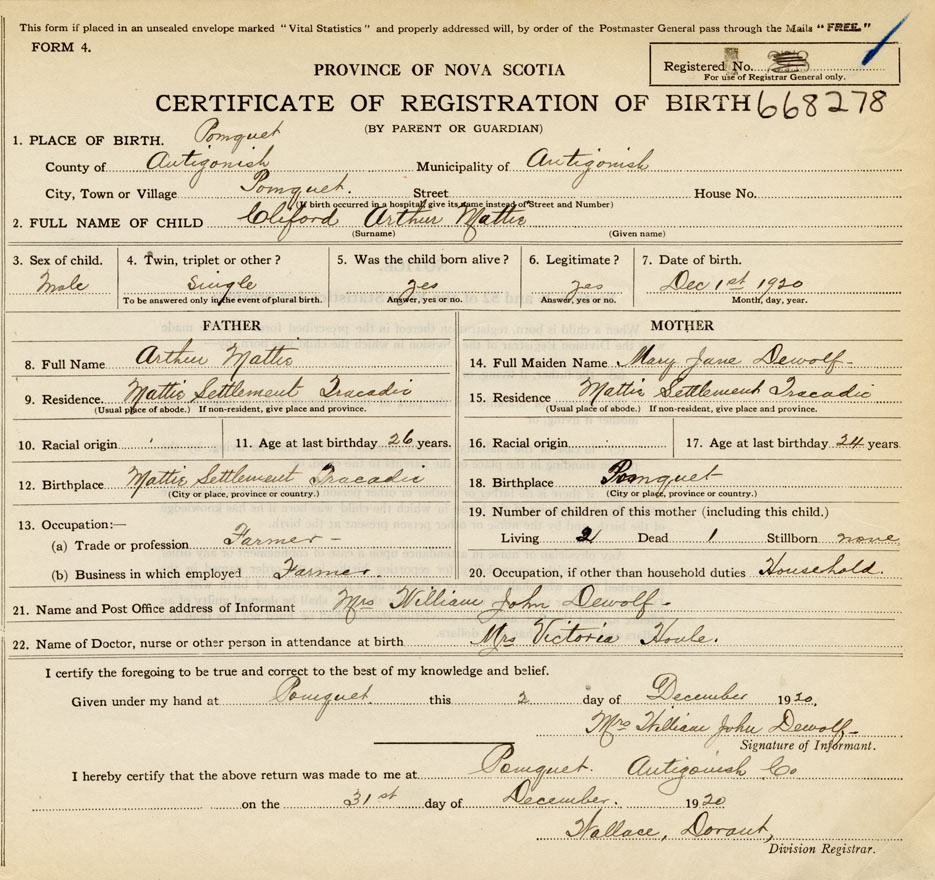 This form if placed in an unsealed envelope marked "Vital Statistics" and properly addressed will, by order of the Postmaster General pass through the Mails "FREE."
FORM 4.
Registered No.
For use of Registrar General only.
PROVINCE OF NOVA SCOTIA
CERTIFICATE OF REGISTRATION OF BIRTH 668278
(BY PARENT OR GUARDIAN)
1. PLACE OF BIRTH. Pomquet
County of Antigonish Municipality of Antigonish
City, Town or Village Pomquet. Street House No.
(If birth occurred in a hospital give its name instead of Street and Number)
2. FULL NAME OF CHILD Cliford Arthur Mattie
(Surname) (Given name)
3. Sex of child. 4. Twin, triplet or other? 5. Was the child born alive? 6. Legitimate? 7. Date of birth.
Male Single yes yes Dec 1st 1920
To be answered only in the event of plural birth. Answer, yes or no. Answer, yes or no. Month, day, year.
FATHER MOTHER
8. Full Name Arthur Mattie 14. Full Maiden Name Mary Jane Dewolf-
9. Residence. Mattie Settlement Tracadie 15. Residence Mattie Settlement Tracadie
(Usual place of abode.) If non-resident, give place and province. (Usual place of abode.) If non-resident, give place and province.
10. Racial origin 11. Age at last birthday 26 years. 16. Racial origin 17. Age at last birthday 24 years.
12. Birthplace Mattie Settlement Tracadie 18. Birthplace Pomquet
(City or place, province or country.) (City or place, province or country.)
13. Occupation:— 19. Number of children of this mother (including this child.)
(a) Trade or profession Farmer - Living 2 Dead 1 Stillborn none
(b) Business in which employed Farmer. 20. Occupation, if other than household duties Household.
21. Name and Post Office address of Informant Mrs William John Dewolf-
22. Name of Doctor, nurse or other person in attendance at birth Mrs Victoria
I certify the foregoing to be true and correct to the best of my knowledge and belief.
Given under my hand at Pomquet this 2 day of December 1920,
Mrs William John Dewolf-
Signature of Informant.
I hereby certify that the above return was made to me at Pomquet. Antigonish Co
on the 31st day of December. 1920
Wallace, Dorant,
Division Registrar.